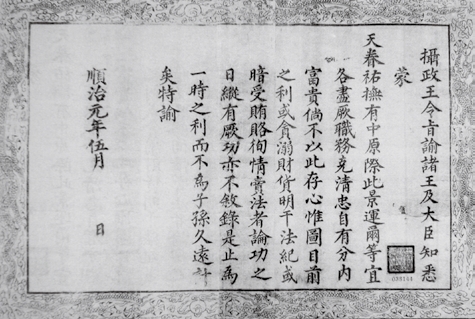 攝政王令旨諭諸王及大臣知悉
蒙
天眷祐撫有中原際此景運爾等宜
各盡厥職務克清忠自有分內
富貴倘不以此存心惟圖目前
之利或貪溺財貨明干法紀或
暗受賄賂徇情賣法者論功之
日縱有厥功亦不敘錄是止為
一時之利而不為子孫久遠計
矣特諭
順治元年伍月 日